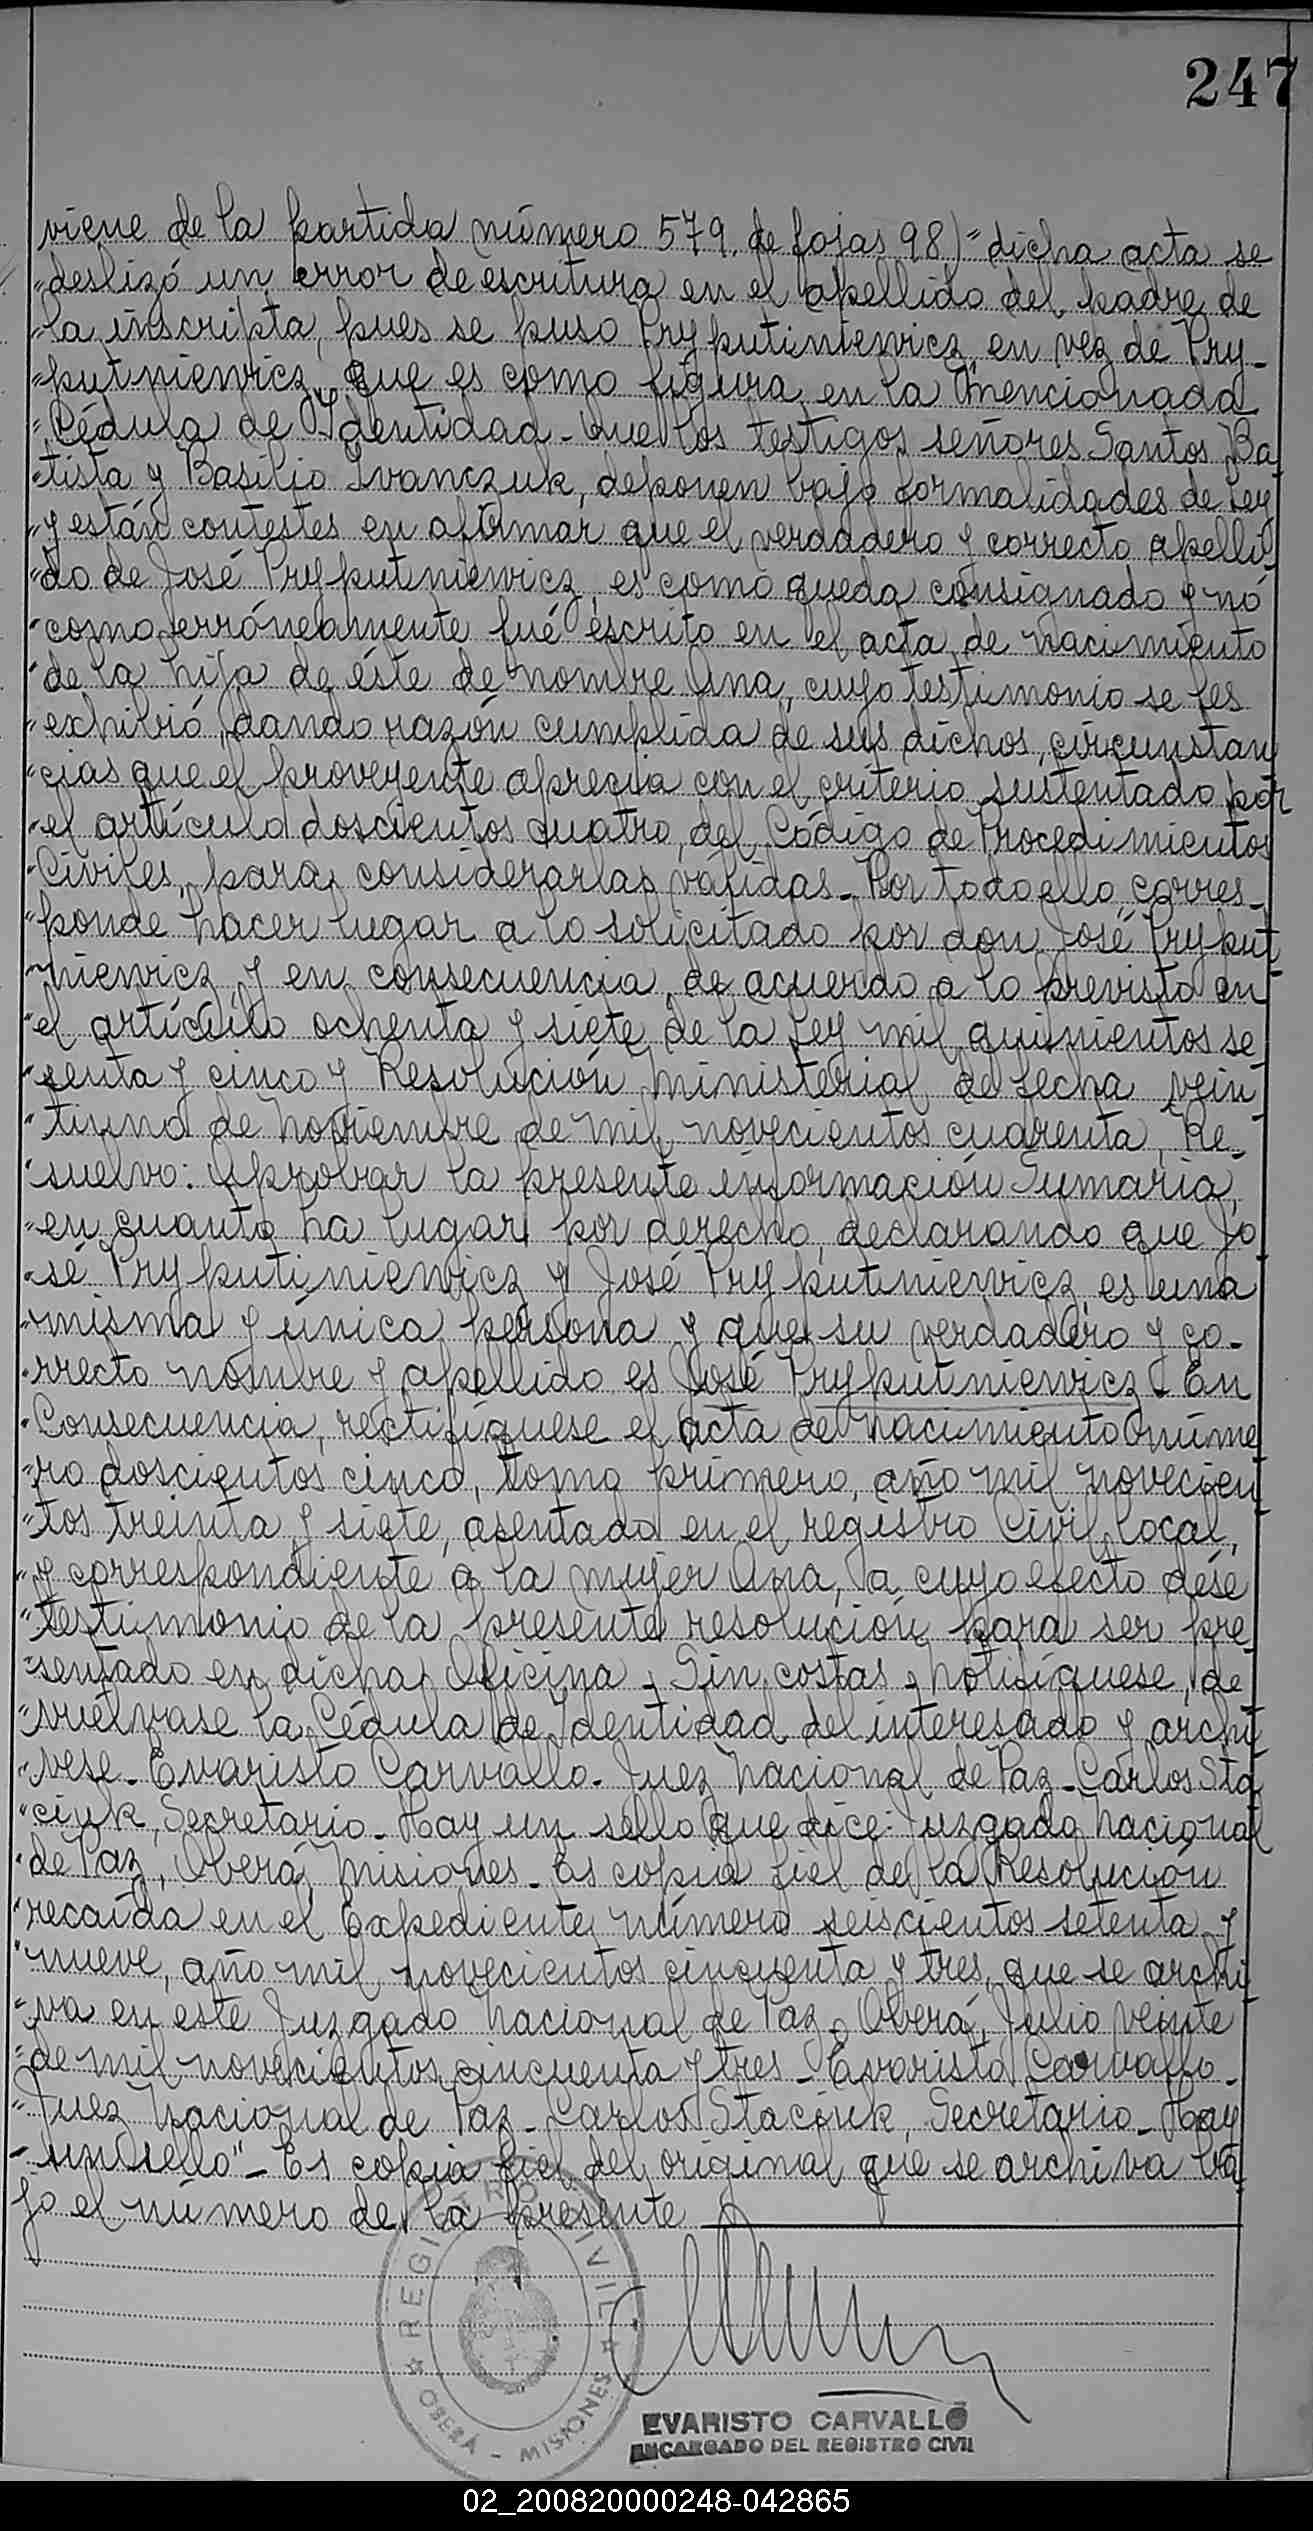 247
viene de la partida número 579. de fojas 98) "dicha acta se
"deslizó un error de escritura en el apellido del padre de
"la inscripta, pues se puso Pryputiniewicz, en vez de Pry-
"putniewicz, que es como figura en la mencionada
"Cédula de Identidad. Que los testigos señores Santos Ba
"tista y Basilio Ivanczuk, deponen bajo formalidades de Ley
"y están contestes en afirmar que el verdadero y correcto apelli
"do de José Pryputniewicz, es como queda consignado y nó
"como erróneamente fué escrito en el acta de nacimiento
"de la hija de éste de nombre Ana, cuyo testimonio se les
"exhibió, dando razón cumplida de sus dichos, circunstan
"cias que el proveyente aprecia con el criterio sustentado por
"el artículo doscientos cuatro, del Código de Procedimientos
"Civiles, para considerarlas válidas. Por todo ello, corres-
"ponde hacer lugar a lo solicitado por don José Pryput
"niewicz y en consecuencia, de acuerdo a lo previsto en
"el artículo ochenta y siete de la Ley mil quinientos se
"senta y cinco y Resolución Ministerial de fecha vein
"tiuno de Noviembre de mil novecientos cuarenta, Re-
"suelvo: Aprobar la presente información Sumaria,
"en cuanto ha lugar por derecho, declarando que Jo
"sé Pryputiniewicz y José Pryputniewicz, es una
"misma y única persona y que su verdadero y co-
"rrecto nombre y apellido es José Pryputniewicz. En
"Consecuencia, rectifíquese el acta de Nacimiento núme
"ro doscientos cinco, tomo primero, año mil novecien
"tos treinta y siete, asentado en el registro Civil local,
"y correspondiente a la mujer Ana, a cuyo efecto dése
"testimonio de la presente resolución para ser pre
"sentado en dicha Oficina. Sin costas, notifíquese, de
"vuélvase la Cédula de Identidad del interesado y archí
"vese. Evaristo Carvallo. Juez Nacional de Paz. Carlos Sta
"ciuk, Secretario. Hay un sello que dice: Juzgado Nacional
"de Paz, Oberá, Misiones. Es copia fiel de la Resolución
"recaída en el Expediente número seiscientos setenta y
"nueve, año mil novecientos cincuenta y tres, que se archi
"va en este Juzgado Nacional de Paz. Oberá, Julio veinte
"de mil novecientos cincuenta y tres. Evaristo Carvallo.
"Juez Nacional de Paz. Carlos Staciuk, Secretario. Hay
"un sello". Es copia fiel del original que se archiva ba
jo el número de la presente
REGISTRO CIVIL
OBERÁ - MISIONES
EVARISTO CARVALLO
ENCARGADO DEL REGISTRO CIVIL
02_200820000248-042865